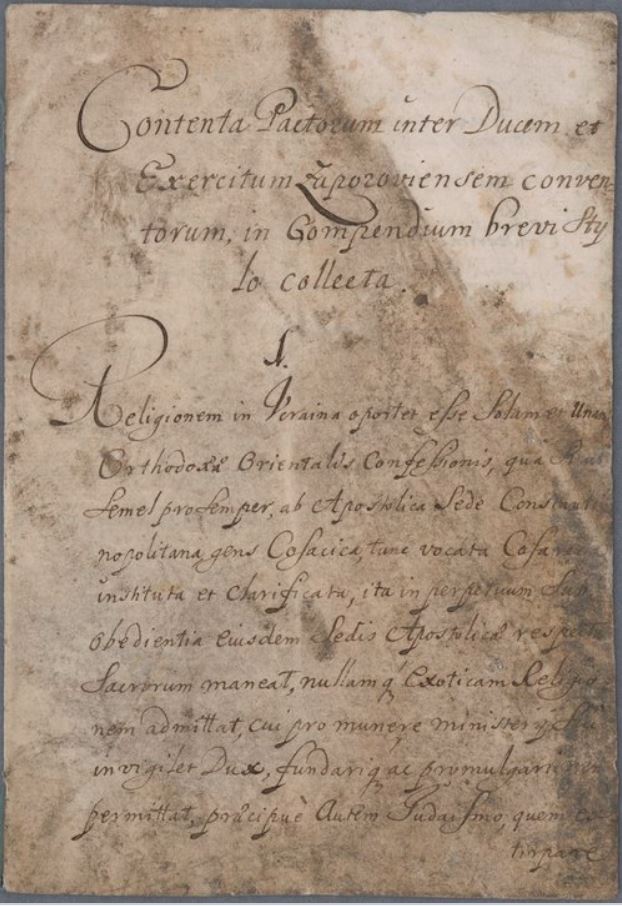 Contenta Pactorum inter Ducem et
Exercitum Zaporoviensem conven-
torum, in Compendium brevi Sty
lo collecta.
1.
Religionem in Vcraina oportet esse Solam et Unam
Orthodoxæ Orientalis Confessionis, quâ
semel pro semper, ab Apostolica Sede Constanti
nopolitana, gens Cosacica, tunc vocata
instituta et clarificata, ita in perpetuum Sub
obedientia eiusdem Sedis Apostolicæ respectu
Sacrorum maneat, nullamq́ Exoticam Religio
nem admittat, cui pro munere ministerÿ
invigilet Dux, fundariq́ ac promulgari non
permittat, præcipuè Autem Judaismo, quem ex
tirpare